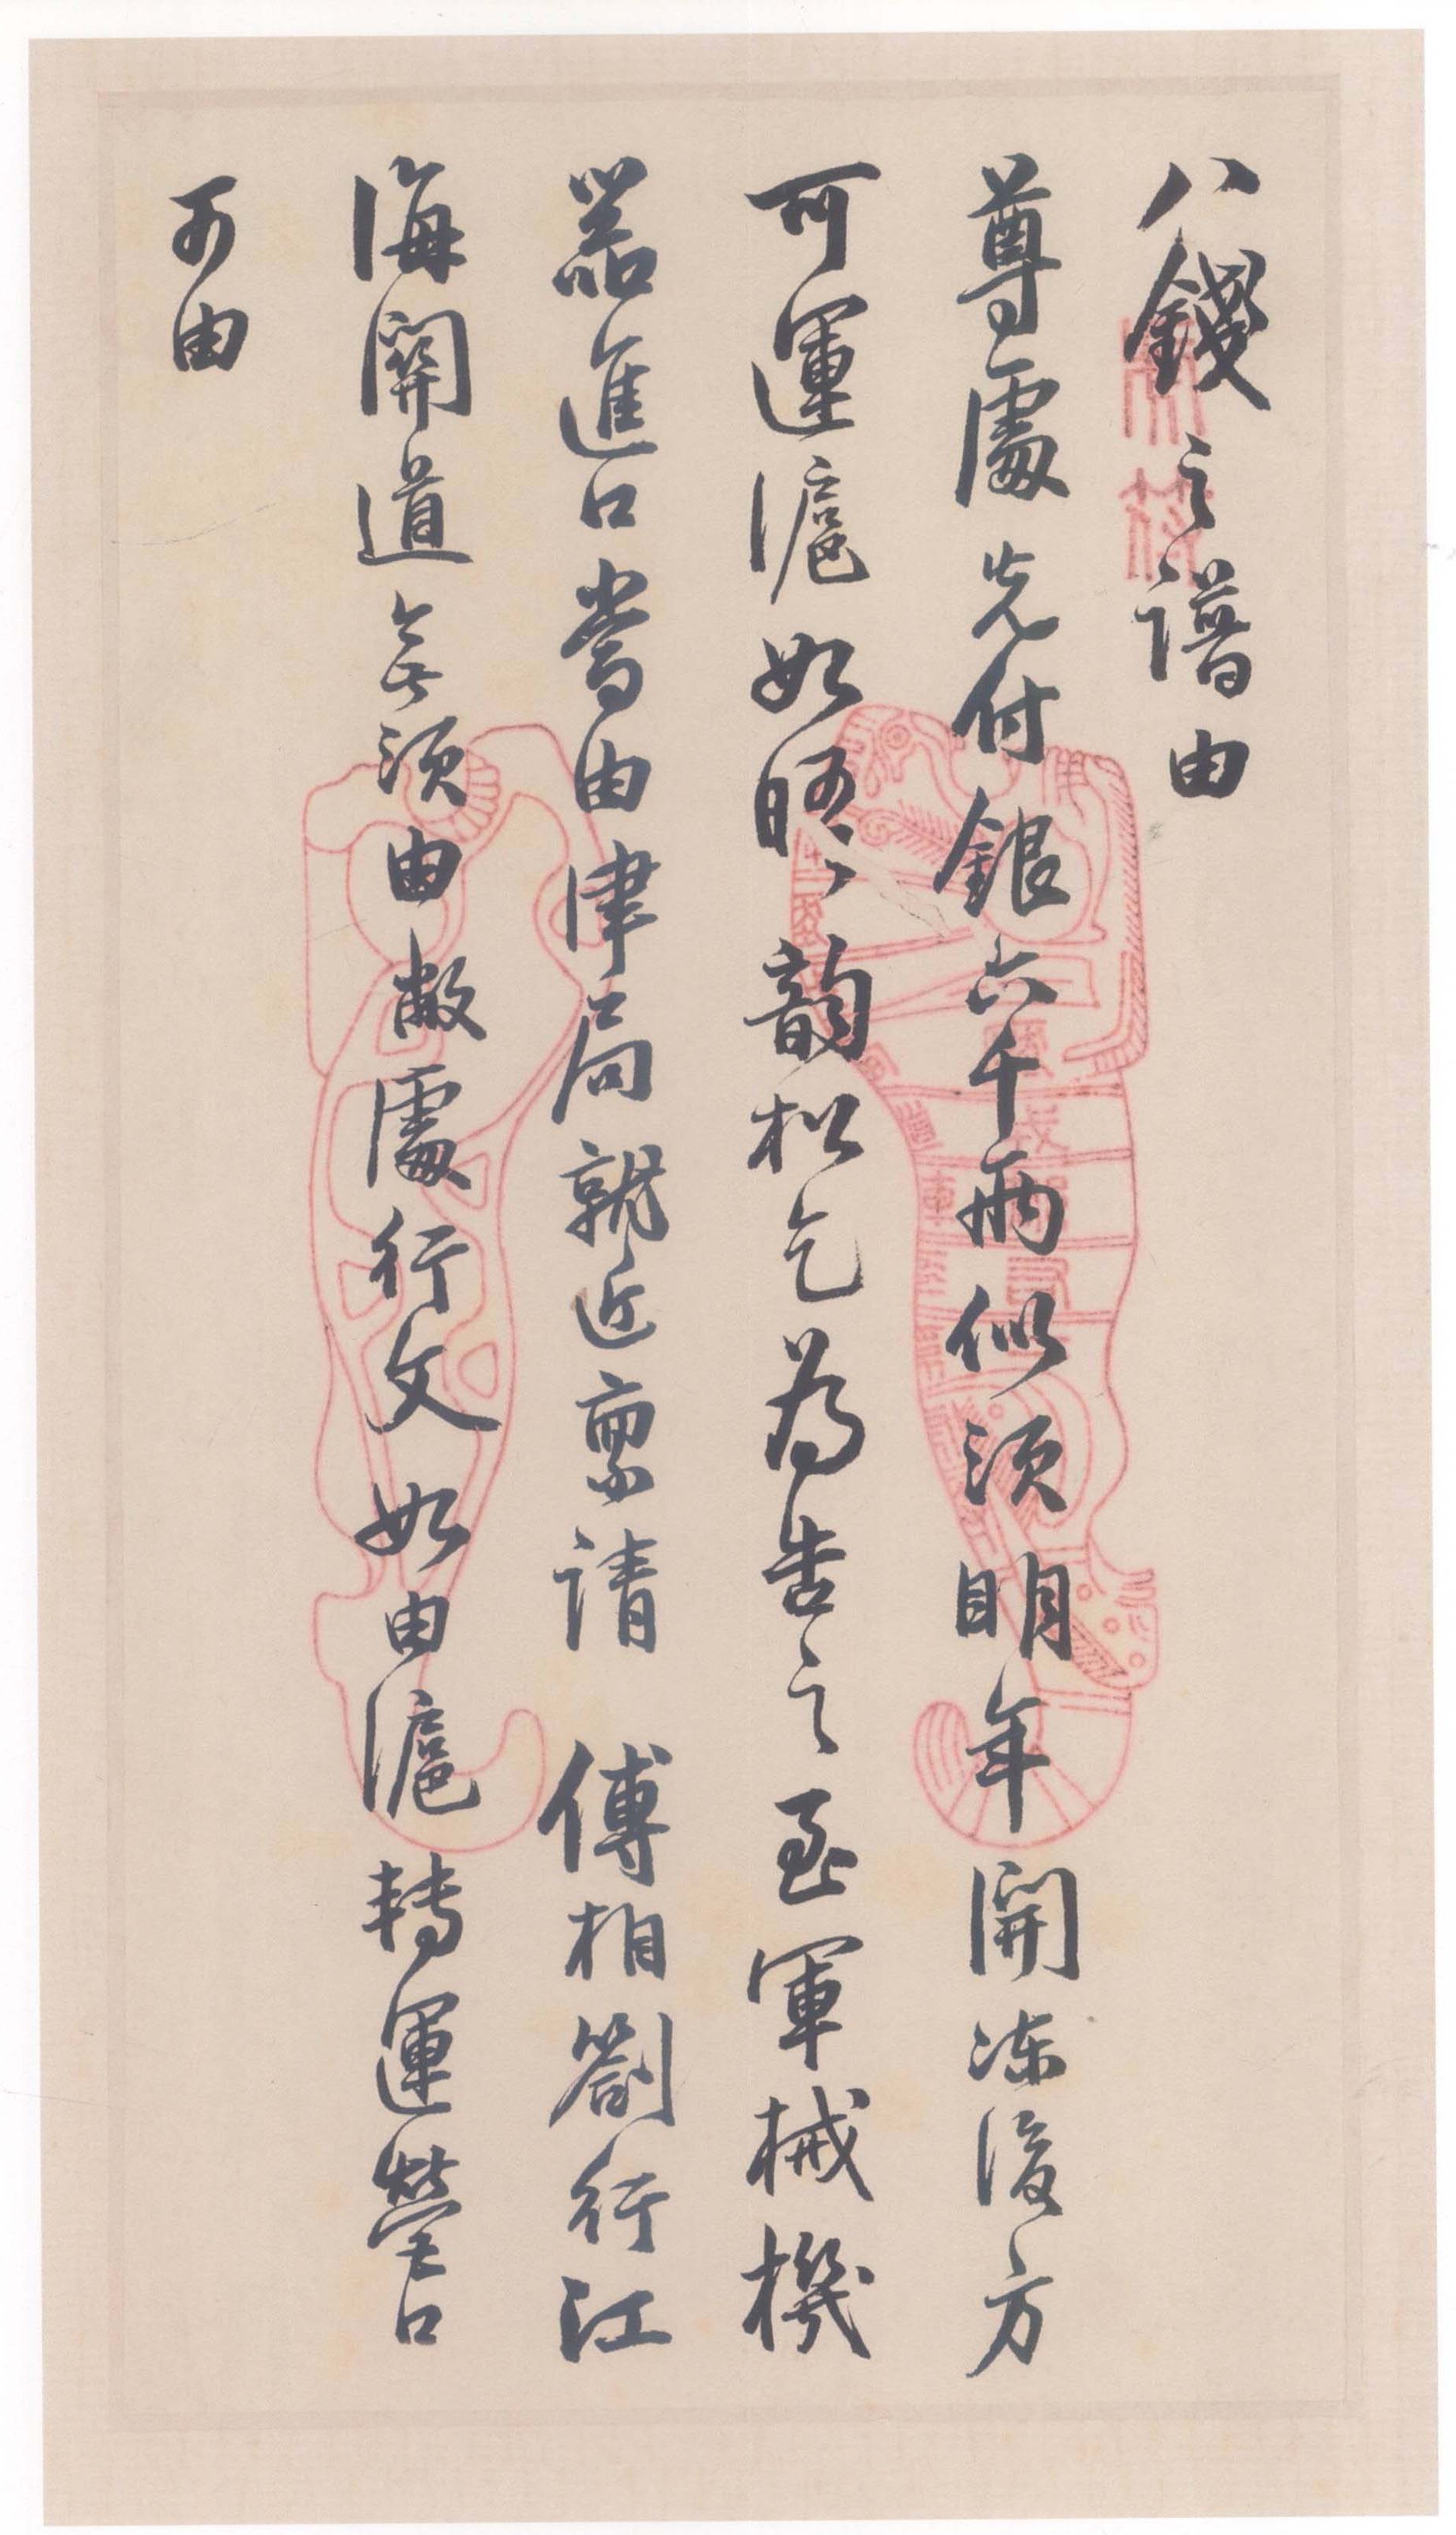 八錢之譜由
尊處先付銀六千兩似須明年開凍後方
可運滬如晤韵松乞為告之至軍械機
器進口當由津局就近稟請 傅相劄行江
海關道無須由敝處行文如由滬轉運營口
可由